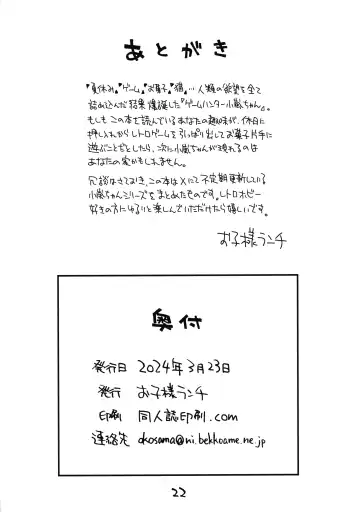 あとがき
『夏休み』『ゲーム』『お菓子』『猫』… 人類の欲望を全て
詰め込んだ結果爆誕した『ゲームハンター小嵐ちゃん』。
もしもこの本を読んでいるあなたの趣味が、休日に
押し入れからレトロゲームを引っぱり出してお菓子片手に
遊ぶことだとしたら、次に小嵐ちゃんが現れるのは
あなたの家かもしれません。
冗談はさておき、この本はXにて不定期更新している
小嵐ちゃんシリーズをまとめたものです。レトロホビー
好きの方にゆるりと楽しんでいただけたら嬉しいです。
お子様ランチ
奥付
発行日 2024年3月23日
発行 お子様ランチ
印刷 同人誌印刷.com
連絡先 okosama@ni.bekkoame.ne.jp
22